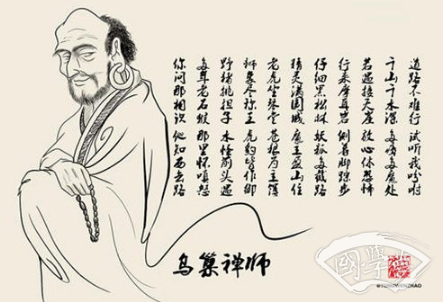 道路不难行 试听我吩咐
千山千水深 多瘴多魔处
若遇接天崖 放心休恐怖
行来摩耳岩 侧着脚踪步
仔细黑松林 妖狐多截路
精灵满国城 魔主盈山住
老虎坐琴堂 苍狼为主簿
狮象尽称王 虎豹皆作御
野猪挑担子 水怪前头遇
多年老石猴 那里怀嗔怒
你问那相识 他知西去路
乌巢禅师
國學